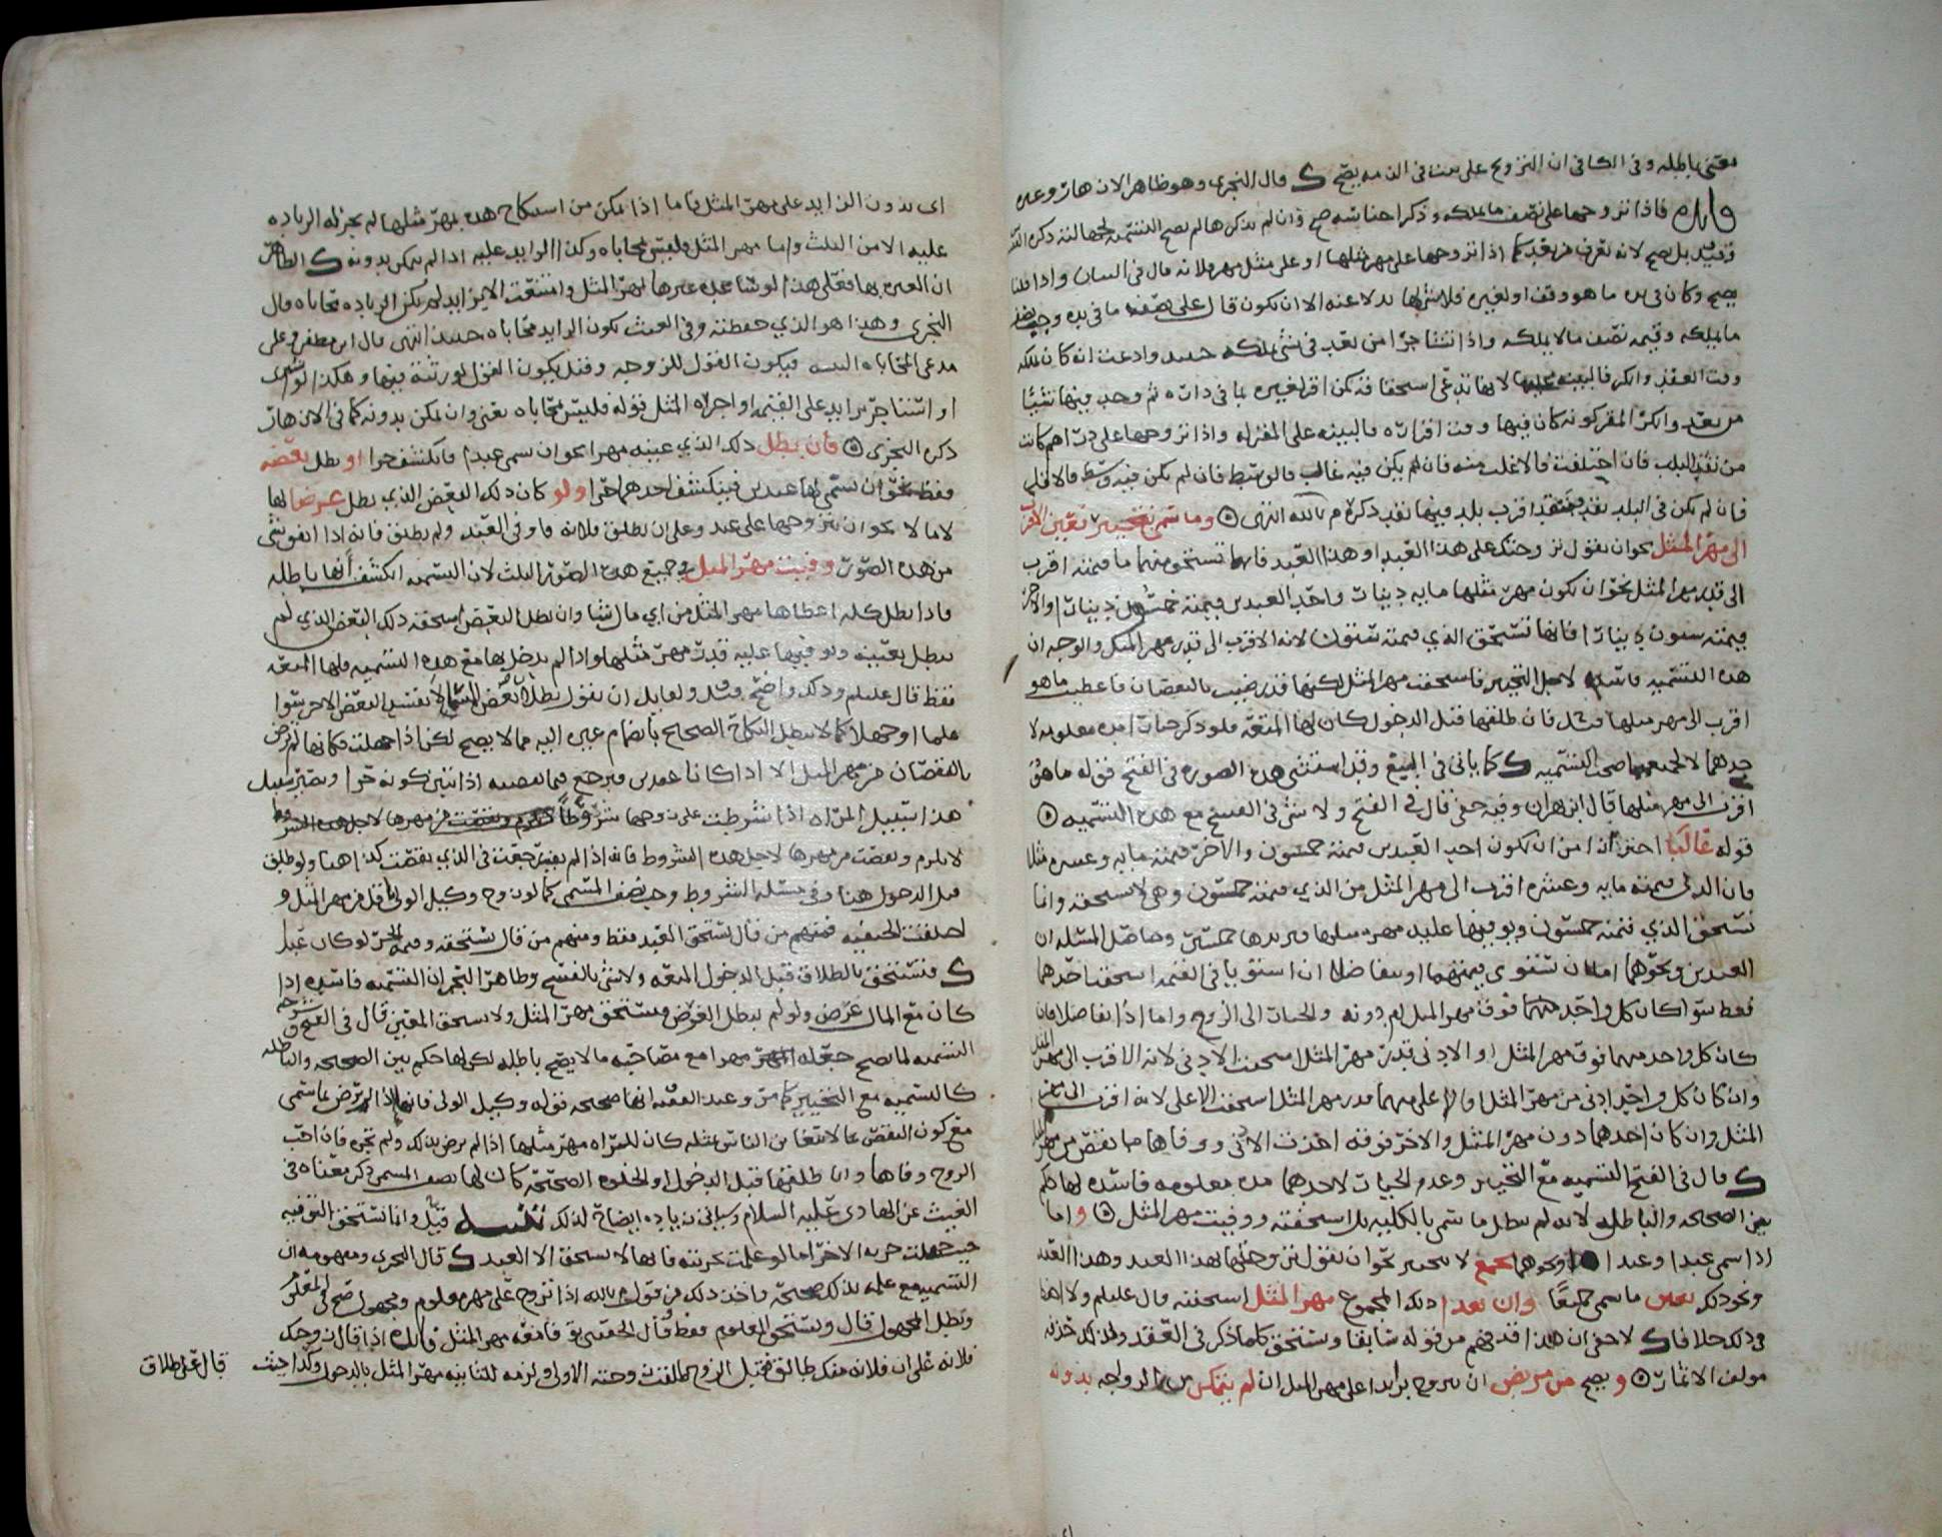 يعني باطله وفي الكافي ان التزويج على بيت في الذمه يصح ك قال النجري وهو ظاهر الازهار وعده
فايده فاذا تزوجها على نصف ما يملكه وذكر اجناسه صح وان لم يذكرها لم يصح التسميه لجهالته ذكره
وقيل بل يصح لانه تعرف من بعد كما اذا تزوجها على مهر مثلها او على مثل مهر فلانه قال في البيان واذا قلنا
يصح وكان في يده ما هو وقف او لغيره فلا شي لها بدلا عنه الا ان يكون قال على نصف ما في يده وجب نصف
ما يملكه وقيمه نصف ما لا يملكه واذا تشاجرا من بعد في شي يملكه حينئذ وادعت انه كان يملكه
وقت العقد وانكر فالبينه عليها لانها تدعي استحقاقه كمن اقر لغيره بما في داره ثم وجد فيها شيئا
من بعد وانكر المقر كونه كان فيها وقت اقراره فالبينه على المقر له واذا تزوجها على دراهم كانت
من نقد البلد فان اختلفت فالاغلب منه فان لم يكن فيه غالب فالوسط فان لم يكن فيه وسط فالاقل
فان لم يكن في البلد نقد فنقد اقرب بلد فيها نقد ذكره م بالله انتهى وما سمي بتخيير تعين الاقرب
الى مهر المثل نحو ان يقول تزوجتك على هذا العبد او هذا العبد فانها تستحق منهما ما قيمته اقرب
الى قدر مهر المثل نحو ان يكون مهر مثلها مايه دينار واحد العبدين قيمته خمسون دينارا والاخر
قيمته ستون دينارا فانها تستحق الذي قيمته ستون لانه الاقرب الى قدر مهر المثل والوجه ان
هذه التسميه فاسده لاجل التخيير فاستحقت مهر المثل لكنها قد رضيت بالنقصان فاعطيت ما هو
اقرب الى مهر مثلها فان طلقها قبل الدخول كان لها المتعه فلو ذكر خيارا مده معلومه لا
حدهما صحت التسميه ك كما ياتي في البيع وقد استثنى هذه الصوره في الفتح قوله ما هو
اقرب الى مهر مثلها قال ابن بهران وفيه خفى قال في الفتح ولا شي في الفسخ مع هذه التسميه
قوله غالبا احترازا من ان يكون احد العبدين قيمته خمسون والاخر قيمته مايه وعشره مثلا
فان الذي قيمته مايه وعشره اقرب الى مهر المثل من الذي قيمته خمسون وهي لا تستحقه وانما
تستحق الذي قيمته خمسون ويوفيها عليه مهر مثلها فيزيدها خمسين وحاصل المسئله ان
العبدين ونحوهما اما ان تستوي قيمتهما او يتفاضلا ان استويا في القيمه استحقت احدهما
فقط سوا كان كل واحد منهما فوق مهر المثل ام دونه والخيار الى الزوج واما اذا تفاضلا فان
كان كل واحد منهما فوق مهر المثل او الادنى قدر مهر المثل استحقت الادنى لانه الاقرب الى مهر المثل
وان كان كل واحد ادنى من مهر المثل او الاعلى منهما قدر مهر المثل استحقت الاعلى لانه اقرب الى مهر
المثل وان كان احدهما دون مهر المثل والاخر فوقه اخذت الادنى ووفاها ما نقص من مهر المثل
ك قال في الفتح التسميه مع التخيير وعدم الخيار لاحدهما مده معلومه فاسده لها حكم
بين الصحيحه والباطله لانه لم يبطل ما سمي بالكليه بل استحقته ووفيت مهر المثل واما
اذا سمى عبدا وعبدا او نحوهما بجمع لا بتخيير نحو ان يقول تزوجتها بهذا العبد وهذا العبد
ونحو ذلك تعين ما سمى جميعا وان تعدا ذلك المجموع مهر المثل استحقته قال عليلم ولا احفظ
في ذلك خلافا ك لا خفى ان هذا قد فهم من قوله سابقا وتستحق كلما ذكر في العقد ولذلك حذفه
مولف الاثمار ويصح من مريض ان يتزوج بزايد على مهر المثل ان لم يتمكن من الزواجه بدونه
اي بدون الزايد على مهر المثل فاما اذا تمكن من استنكاح هذه بمهر مثلها لم يجز له الزياده
عليه الا من الثلث واما مهر المثل فليس محاباه وكذا الزايد عليه اذا لم يتمكن بدونه ك الظاهر
ان العبره بها فعلى هذا لو ساعده غيرها بمهر المثل وامتنعت الا بزايد لم يكن الزياده محاباه قال
النجري وهذا هو الذي حفظته وفي الغيث يكون الزايد محاباه حينئذ انتهى قال ابن مظفر وعلى
مدعي المحاباه البينه فيكون القول للزوجه وقيل يكون القول لورثته فيها وهكذا لو اشترى
او استاجر بزايد على القيمه او اجره المثل قوله فليس محاباه يعني وان تمكن بدونه كما في الازهار
ذكره النجري فان بطل ذلك الذي عينه مهرا نحو ان سمى عبدا فانكشف حرا او بطل بعضه
فقط نحو ان يسمي لها عبدين فينكشف احدهما حرا ولو كان ذلك البعض الذي بطل غرضا لها
لا مالا نحو ان يتزوجها على عبد وعلى ان يطلق فلانه فاوفى العبد ولم يطلق فانه اذا اتفق شي
من هذه الصور وفيت مهر المثل في جميع هذه الصور الثلث لان التسميه انكشف انها باطله
فاذا بطل كله اعطاها مهر المثل من اي مال شا وان بطل البعض استحقت ذلك البعض الذي لم
يبطل بعينه ووفيها عليه قدر مهر مثلها واذا لم يدخل بها مع هذه التسميه فلها المتعه
فقط قال عليلم وذلك واضح ولقايل ان يقول بطلان بعض المسمى لا يفسد البعض الاخر سوا
علما او جهلا كما لا يبطل النكاح الصحيح بانضمام غيره اليه مما لا يصح لكن اذا جهلت فكانها لم ترض
بالنقصان من مهر المثل الا اذا كانا عبدين فيرجع قيما نقصته اذا تبين كونه حرا ويصير سبيل
هذا سبيل المراه اذا شرطت على زوجها شروطا
لا يلزم ونقصت من مهرها لاجل هذه الشروط فانه اذا لم يف رجعت في الذي نقصت كذا هنا ولو طلق
قبل الدخول هنا وفي مسئله الشروط وجب نصف المسمى كما لو زوج وكيل الولي باقل من مهر المثل و
اختلفت الحنفيه فمنهم من قال تستحق العبد فقط ومنهم من قال تستحقه وقيمه الحر لو كان عبدا
ك وتستحق بالطلاق قبل الدخول المتعه ولا شي بالفسخ وظاهر البحر ان التسميه فاسده اذا
كان مع المال غرض ولو لم يبطل الغرض وتستحق مهر المثل ولا تستحق المعين قال في الفتح وشرحه
التسميه لما يصح جعله مهرا مع مصاحبه ما لا يصح باطله لكن لها حكم بين الصحيحه والباطله
كالتسميه مع التخيير كما مر وعند الفقها انها صحيحه بقوله وكيل الولي فانها اذا لم ترض بما سمي
مع كون النقص مما لا يتغابن الناس بمثله كان للمراه مهر مثلها اذا لم ترض بذلك ولم تجزه فان احب
الزوج وفاها وان طلقها قبل الدخول او الخلوه الصحيحه كان لها نصف المسمى ذكر معناه في
الغيث عن الهادي عليه السلام وسياتي زياده ايضاح لذلك تنبيه قيل وانما تستحق التوفيه
حيث جهلت حريه الاخر اما لو علمت بحريته فانها لا تستحق الا العبد ك قال النجري ومفهومه ان
التسميه مع علمه بذلك صحيحه واخذ ذلك من قول م بالله اذا تزوج على مهر معلوم ومجهول صح في المعلوم
وبطل المجهول قال ويستحق المعلوم فقط قال الحقيني يوفا معه مهر المثل فايده اذا قال زوجتك
فلانه على ان فلانه منك طالق فقبل الزوج طالقت زوجته الاولى ولزمه للثانيه مهر المثل بالدخول وكذا حيث
قال على طلاق